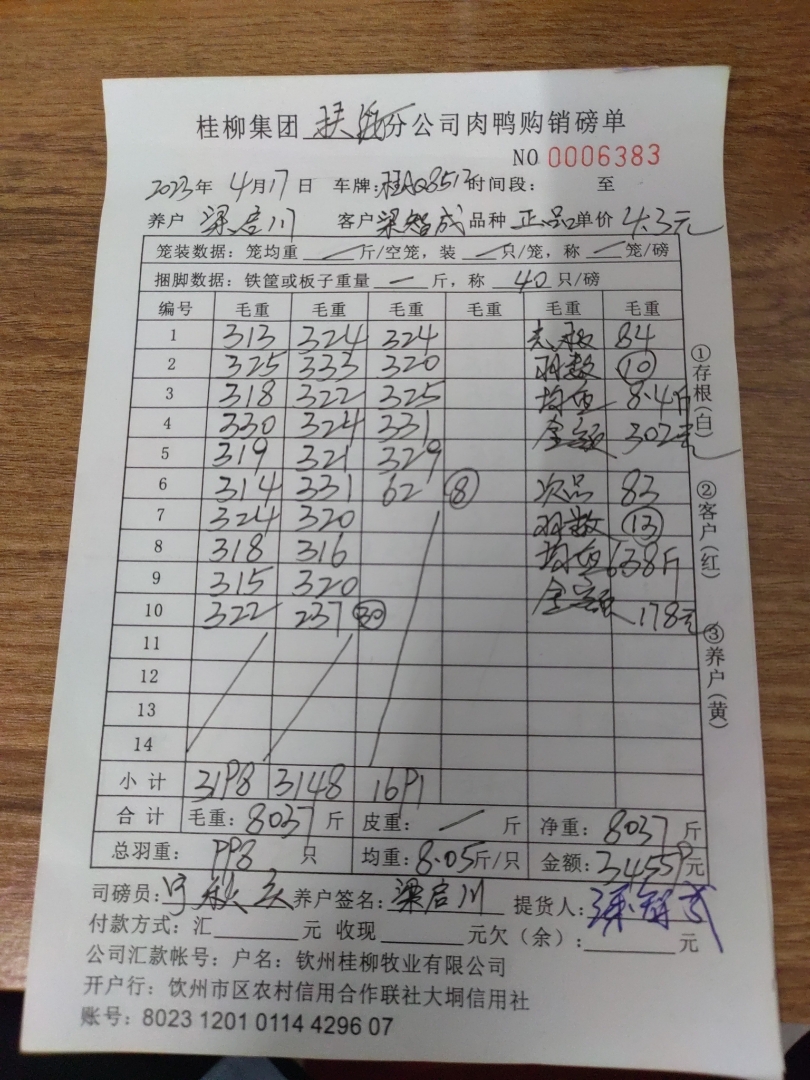 桂柳集团扶绥分公司肉鸭购销磅单
NO 0006383
2023年 4月17日 车牌:桂AQ8513时间段: 至
养户 梁启川 客户梁智成 品种 正品 单价 4.3元
笼装数据: 笼均重 一 斤/空笼, 装 一 只/笼, 称 一 笼/磅
捆脚数据: 铁筐或板子重量 一 斤, 称 40 只/磅
编号 毛重 毛重 毛重 毛重 毛重 毛重
1 313 324 324 84
2 325 333 320 羽数 10
3 318 322 325 均重 8.4斤
4 330 324 331 金额 302元
5 319 321 329
6 314 331 62 8 次品 83
7 324 320 羽数 13
8 318 316 均重 6.38斤
9 315 320 金额 178元
10 322 237 30
11
12
13
14
小计 3198 3148 1691
合计 毛重: 8037 斤 皮重: 一 斤 净重: 8037 斤
总羽重: 998 只 均重: 8.05斤/只 金额: 34559元
司磅员: 养户签名: 梁启川 提货人:
付款方式: 汇 元 收现 元欠(余): 元
公司汇款帐号: 户名: 钦州桂柳牧业有限公司
开户行: 饮州市区农村信用合作联社大垌信用社
账号: 8023 1201 0114 4296 07
①存根(白)
②客户(红)
③养户(黄)